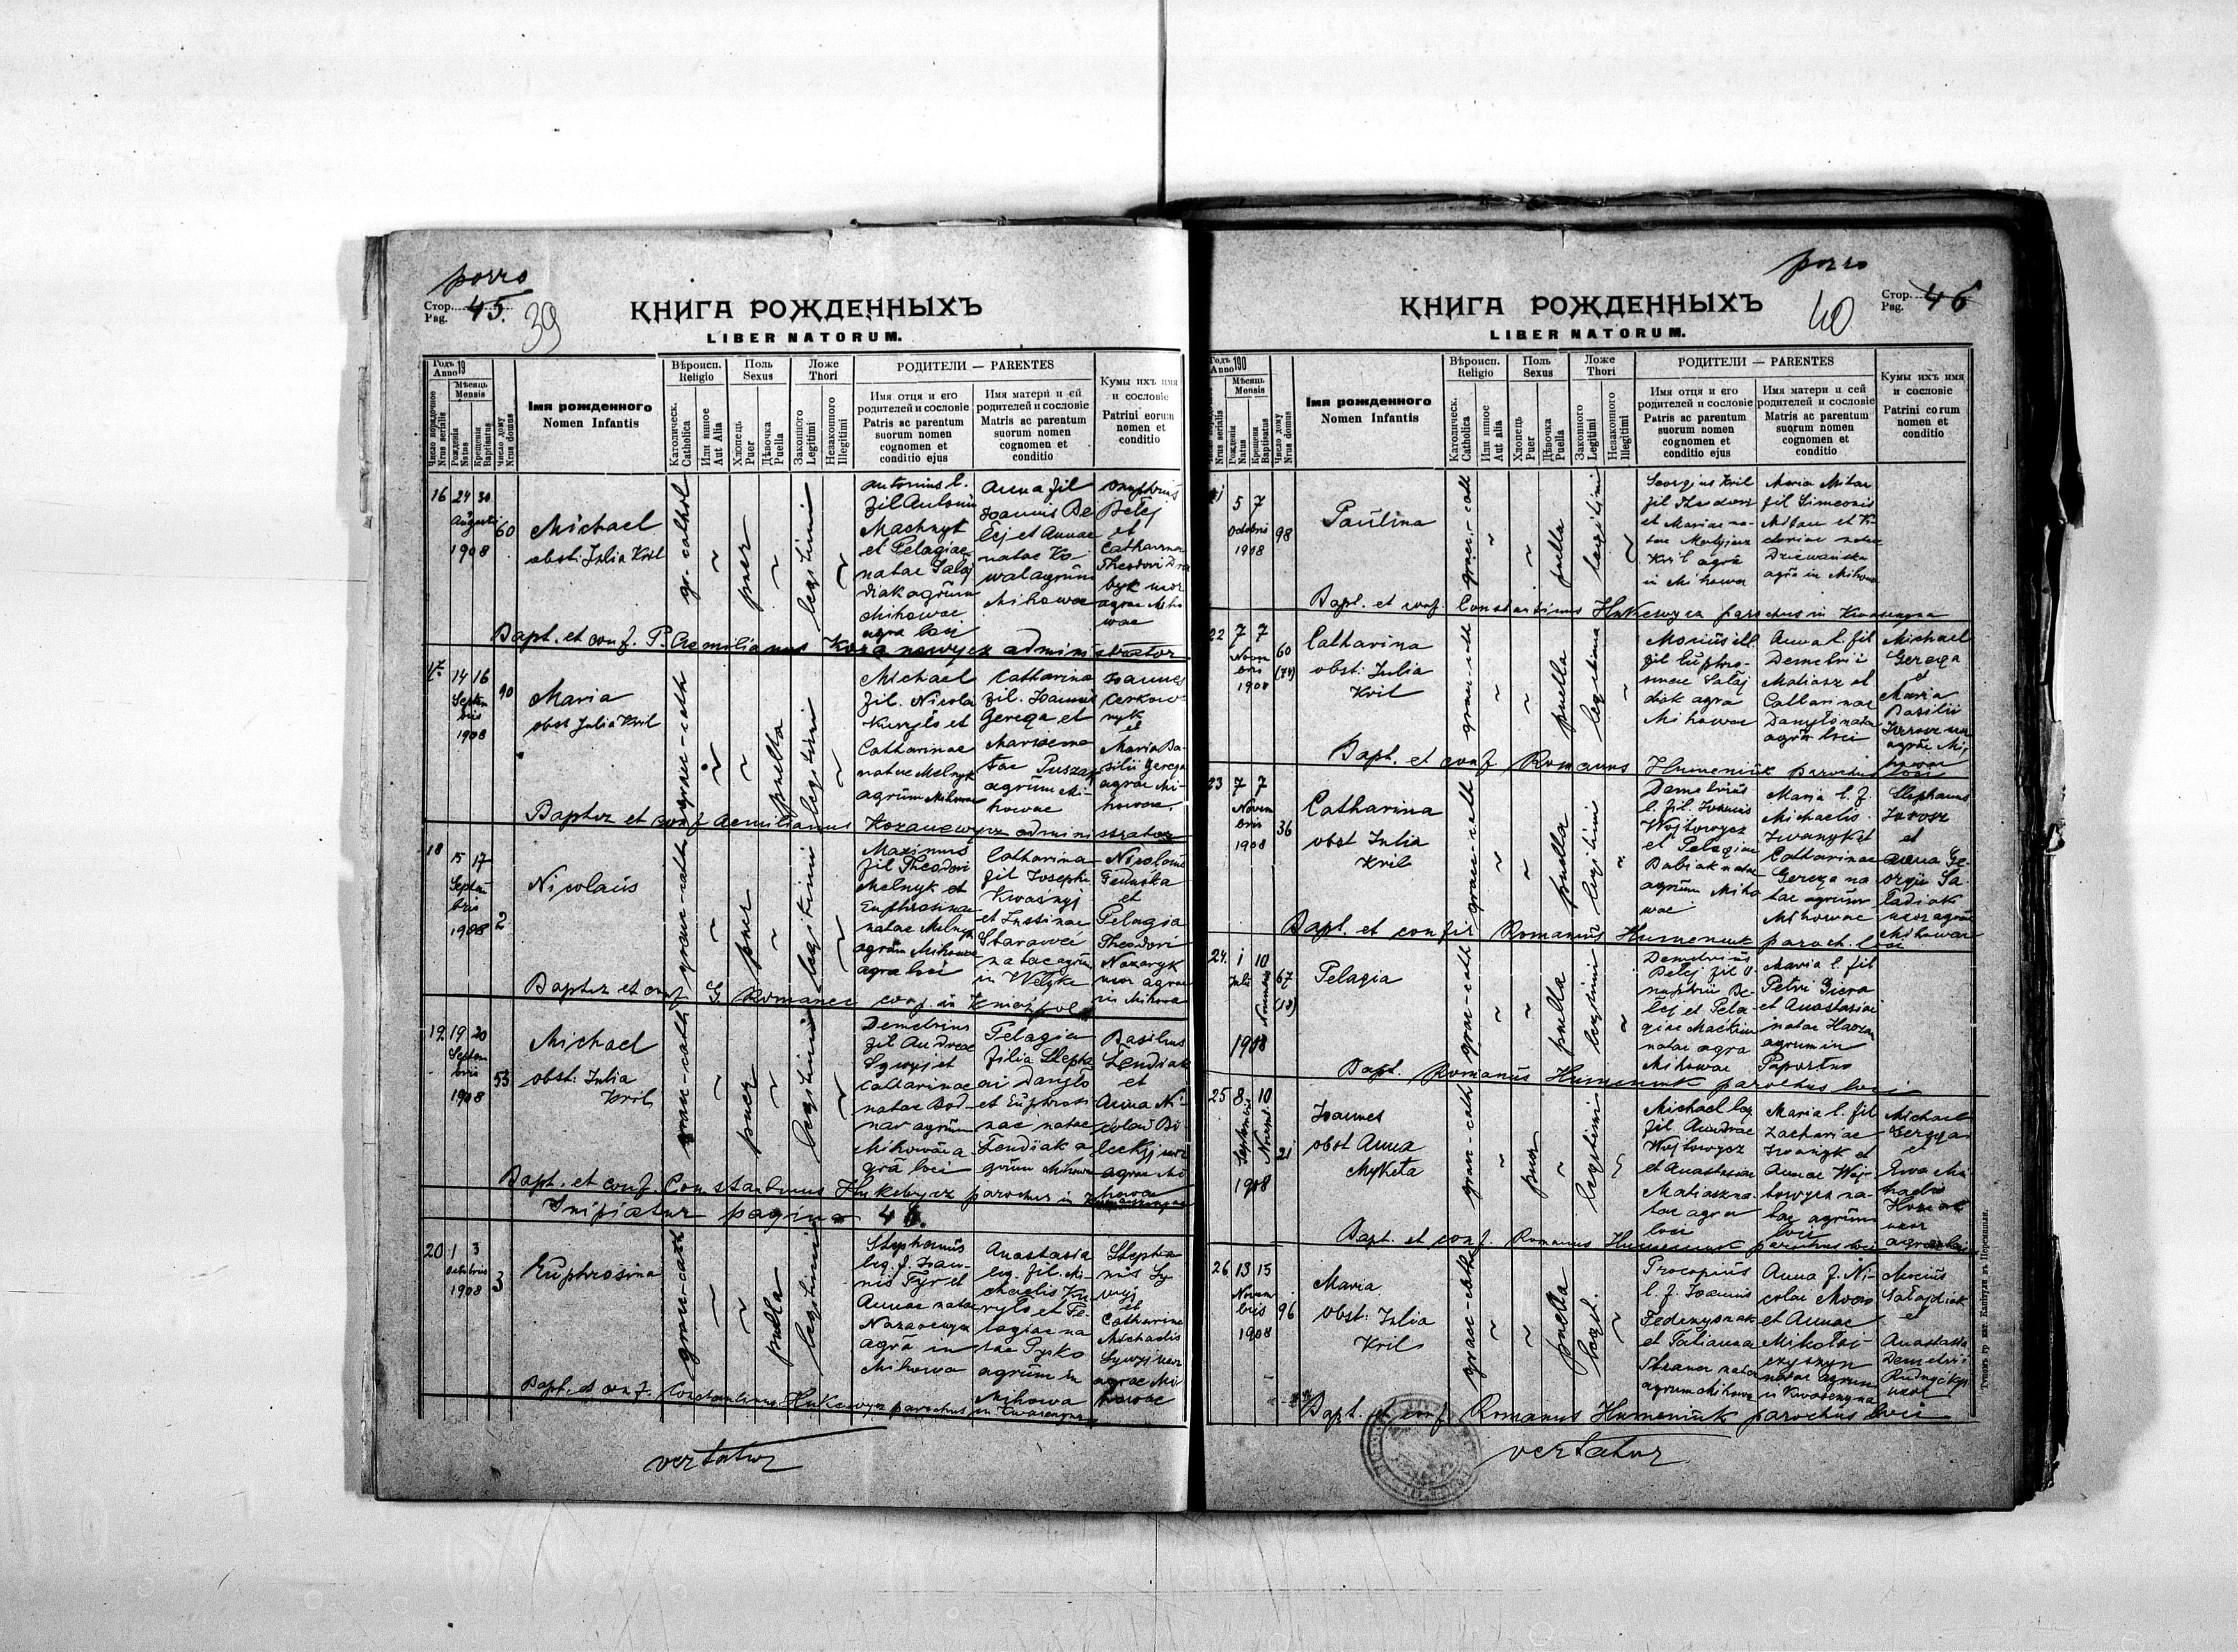 porro
Стор. 45.
Pag.
39
КНИГА РОЖДЕННЫХЪ
LIBER NATORUM.
Годъ 19
Anno
Мѣсяць
Mensis
Число порядочное
Nrus serialis
Рожденія
Natus
Крещенія
Baptisatus
Число дому
Nrus domus
Імя рожденного
Nomen Infantis
Вѣроисп.
Religio
Католическ.
Catholica
Или иное
Aut Alia
Поль
Sexus
Хлопець
Puer
Дѣвочка
Puella
Ложе
Thori
Законного
Legitimi
Незаконного
Illegitimi
РОДИТЕЛИ — PARENTES
Имя отця и его
родителей и сословіе
Patris ac parentum
suorum nomen
cognomen et
conditio ejus
Имя матери и ей
родителей и сословіе
Matris ac parentum
suorum nomen
cognomen et
conditio
Кумы ихъ имя
и сословіе
Patrini eorum
nomen et
conditio
16
24 30
Augusti
1908
60
Michael
obst: Julia Kril
gr.-cathol
puer
legitimi
Antonius l.
fil Antonii
Machnyk
et Pelagiae
natae Salaj
diak agrum
Mihowae
agra loci
Anna fil
Joannis Be
lej et Annae
natae Ko
wal agrum
Mihowae
Onuphrius
Belej
et
Catharina
Theodori
byk uxor
agrae Miho
wae
Bapt. et conf. P. Aemilianus Kozanewycz administrator
17.
14 16
Septem
bris
1908
90
Maria
obst Julia Kril
graec-cath
puella
legitimi
Michael
fil. Nicola
Kuryło et
Catharinae
natae Melnyk
agrum Mihowae
Catharina
fil. Joannis
Gerega et
Mariae na
tae Puszaj
agrum Mi-
howae
Joannes
Cerkow-
nyk
et
Maria Ba
silii Gerega
agrae Mi-
howae.
Baptiz et conf Aemilianus Kozanewycz administrator
18
15 17
Septem
bris
1908
2
Nicolaus
graec-cath
puer
legitimi
Maximus
fil Theodori
Melnyk et
Euphrosinae
natae Melnyk
agrum Mihowae
agra loci
Catharina
fil Josephi
Kwasnyj
et Justinae
Starawei
natae agrum
in Welyke
Nicolaus
Feduska
et
Pelagia
Theodori
Nazaryk
uxor agrae
in Mihowa
Baptiz et conf G. Romanec coop. in Kniażpol
19.
19 20
Septem
bris
1908
53
Michael
obst: Julia
Kril
graec-cath
puer
legitimi
Demetrius
fil Andreae
Sywyj et
Catharinae
natae Bod-
nar agrum
Mihowae a
gra loci
Pelagia
filia Stepha
ni Danyło
et Euphrosi-
nae natae
Fendiak a
grum Mihowae
Basilius
Fendiak
et
Anna Ni-
colai Bi
leckyj uxor
agrae Mi
howae
Bapt. et conf. Constantinus Hukewycz parochus in Kwaszenyna
Initiatur pagina 46.
20
1 3
Octobris
1908
3
Euphrosina
graec-cath
puella
legitimi
Stephanus
leg. f. Joan-
nis Tyr et
Annae natae
Nazarewycz
agra in
Mihowa
Anastasia
leg. fil. Mi-
chaelis Ku
ryło et Pe-
lagiae na
tae Pysko
agrum in
Mihowa
Stepha
nus Sy-
wyj
et
Catharina
Michaelis
Sywyj uxor
agrae Mi
howae
Bapt. et conf. Constantinus Hukewycz parochus in Kwaszenyna
vertatur
porro
40
Стор. 46
Pag.
КНИГА РОЖДЕННЫХЪ
LIBER NATORUM.
Годъ 190
Anno
Мѣсяць
Mensis
Nrus serialis
Рожденія
Natus
Крещенія
Baptisatus
Число дому
Nrus domus
Імя рожденного
Nomen Infantis
Вѣроисп.
Religio
Католическ.
Catholica
Или иное
Aut alia
Поль
Sexus
Хлопець
Puer
Дѣвочка
Puella
Ложе
Thori
Законного
Legitimi
Незаконного
Illegitimi
РОДИТЕЛИ — PARENTES
Имя отця и его
родителей и сословіе
Patris ac parentum
suorum nomen
cognomen et
conditio ejus
Имя матери и сей
родителей и сословіе
Matris ac parentum
suorum nomen
cognomen et
conditio
Кумы ихъ имя
и сословіе
Patrini eorum
nomen et
conditio
5 7
Octobris
1908
98
Paulina
graec-cath
puella
legitimi
Georgius Kril
fil Theodori
et Mariae na-
tae
Kril agra
in Mihowa
Maria Mitar
fil Simeonis
et
natae
agra in Mihowa
Bapt. et conf. Constantinus Hukewycz parochus in Kwasenyna
22
7 7
Novem
bris
1908
60
(74)
Catharina
obst: Julia
Kril
graec-cath
puella
legitima
fil Euphro-
sinae Salaj
diak agra
Mihowae
Anna l. fil
Demetrii
Matiasz et
Catharinae
Danyło natae
agra loci
Michael
Gerega
et
Maria
Basilii
agrae Mi-
howae
Bapt. et conf Romanus Humeniuk parochus loci
23
7 7
Novem
bris
1908
36
Catharina
obst Julia
Kril
graec-cath
puella
legitimi
Demetrius
l. fil. Joannis
Wojtowycz
et Pelagiae
Babiak natae
agrum Miho
wae
Maria l. f.
Michaelis
Iwanyk et
Catharinae
Gerega na
tae agrum
Mihowae
Stephanus
Jarosz
et
Anna Ge-
orgii Sa
ladiak
uxor agrae
Mihowae
Bapt. et confir Romanus Humeniuk paroch. loci
24.
1 10
Julii Novembris
1908
67
(12)
Pelagia
graec-cath
puella
legitimi
Demetrius
Belej fil O-
nuphrii Be-
lej et Pela-
giae
natae agra
Mihowae
Maria l. fil
Petri Giera
et Anastasiae
natae
agrum in
Paportno
Bapt. Romanus Humeniuk parochus loci
25
8 10
Septembris Novemb
1908
21
Joannes
obst Anna
Myketa
graec-cath
puer
legitimi
Michael leg
fil. Andreae
Wojtowycz
et Anastasiae
Matiasz na-
tae agra
loci
Maria l. fil
Zachariae
Iwanyk et
Annae Woj-
towycz na-
tae agrum
loci
Michael
Gerega
et
Ewa Mi-
chaelis
uxor
agrae loci
Bapt. et conf. Romanus Humeniuk parochus loci
26
13 15
Novem
bris
1908
96
Maria
obst: Julia
Kril
graec-cath
puella
legit.
Procopius
l. f. Joannis
et Tatianna
natae
agrum Mihowa
Anna f. Ni-
colai
et Annae
Mikołai-
czyszyn
natae agrum
in Kwasenyna
Mocius
Salajdiak
et
Anastasia
Demetrii
Rudnyckyj
uxor
Bapt. et conf Romanus Humeniuk parochus loci
vertatur